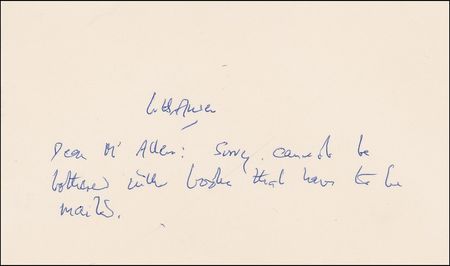 W H Auden
Dear Mr Allen: Sorry. cannot be
bothered with books that have to be
mailed.